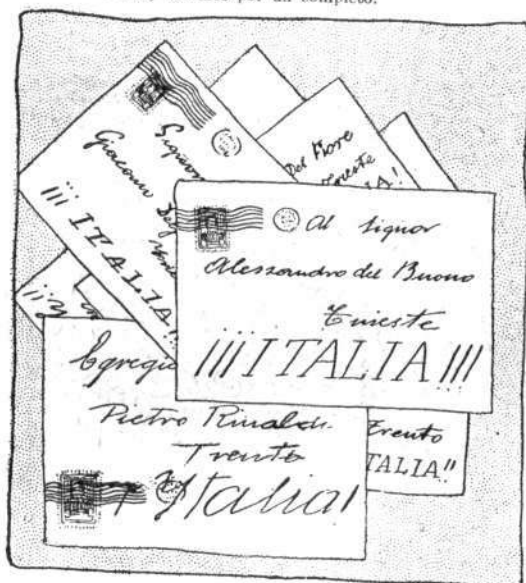 por un completo.
Signor
Giacomo Del
¡¡¡ITALIA!!
Del Fiore
Trieste
IA!
Al Signor
Alessandro del Buono
Trieste
¡¡¡ITALIA!!!
Egregio
Pietro Rinaldi
Trento
Italia!
Trento
TALIA"